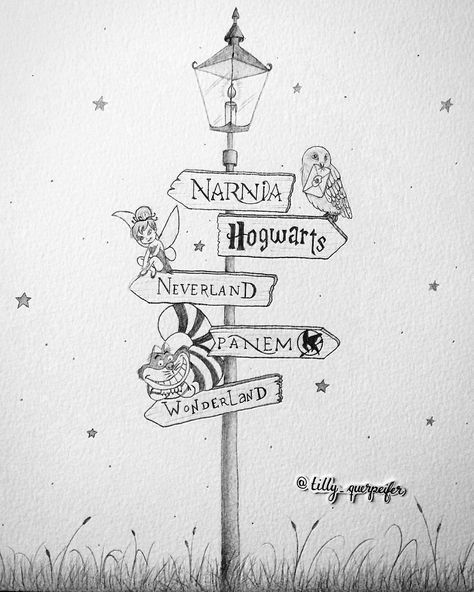 NARNIA
HOGWARTS
NEVERLAND
PANEM
WONDERLAND
@tilly_querpeifer